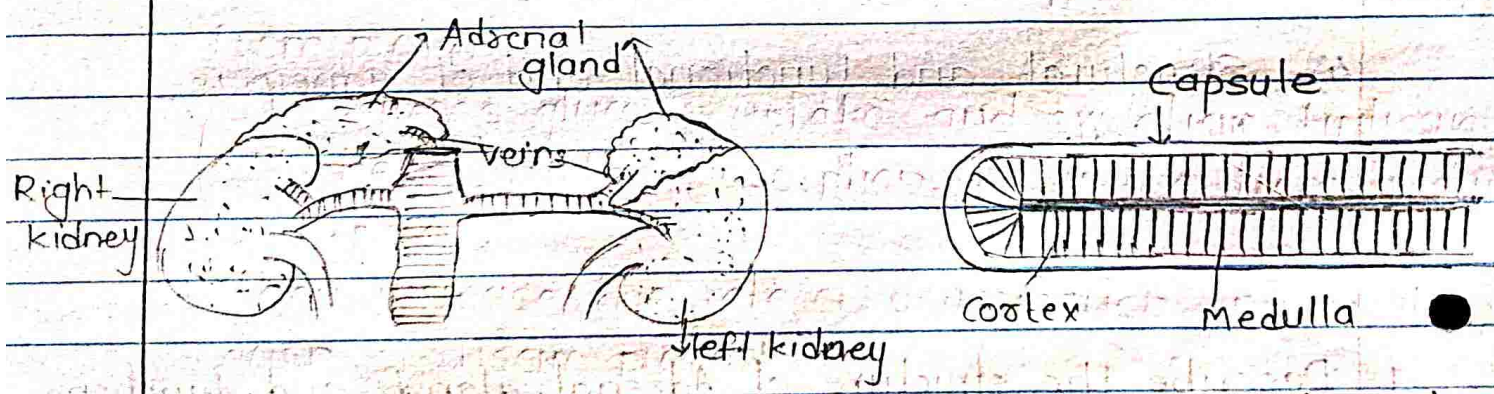 Adrenal
gland
Capsule
veins
Right
kidney
cortex
Medulla
left kidney